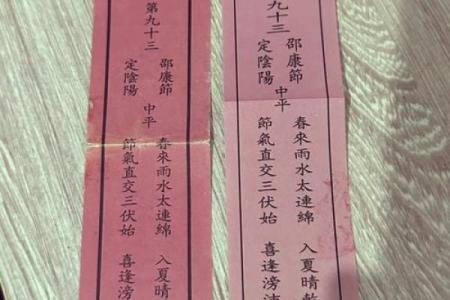 第九十三
邵康節
定陰陽
中平
春來雨水太連綿 入夏晴
節氣直交三伏始 喜逢滂
九十三
邵康節
定陰陽
中平
春來雨水太連綿 入夏晴
節氣直交三伏始 喜逢滂